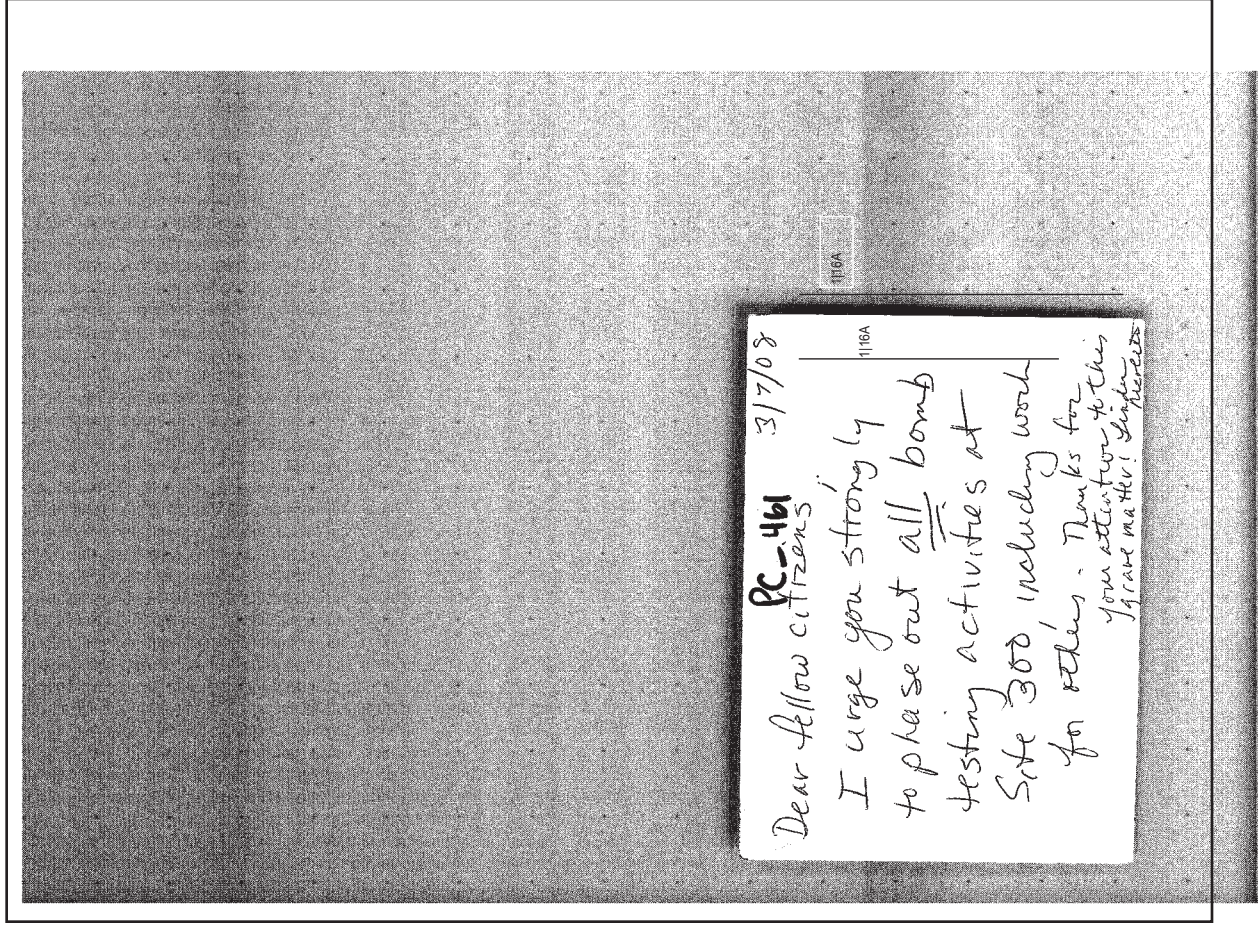 PC-461
3/7/08
Dear fellow citizens
I urge you strongly
to phase out all bomb
testing activities at
Site 300 including work
for others. Thanks for
your attention to this
grave matter! Linda
1|16A
1|16A